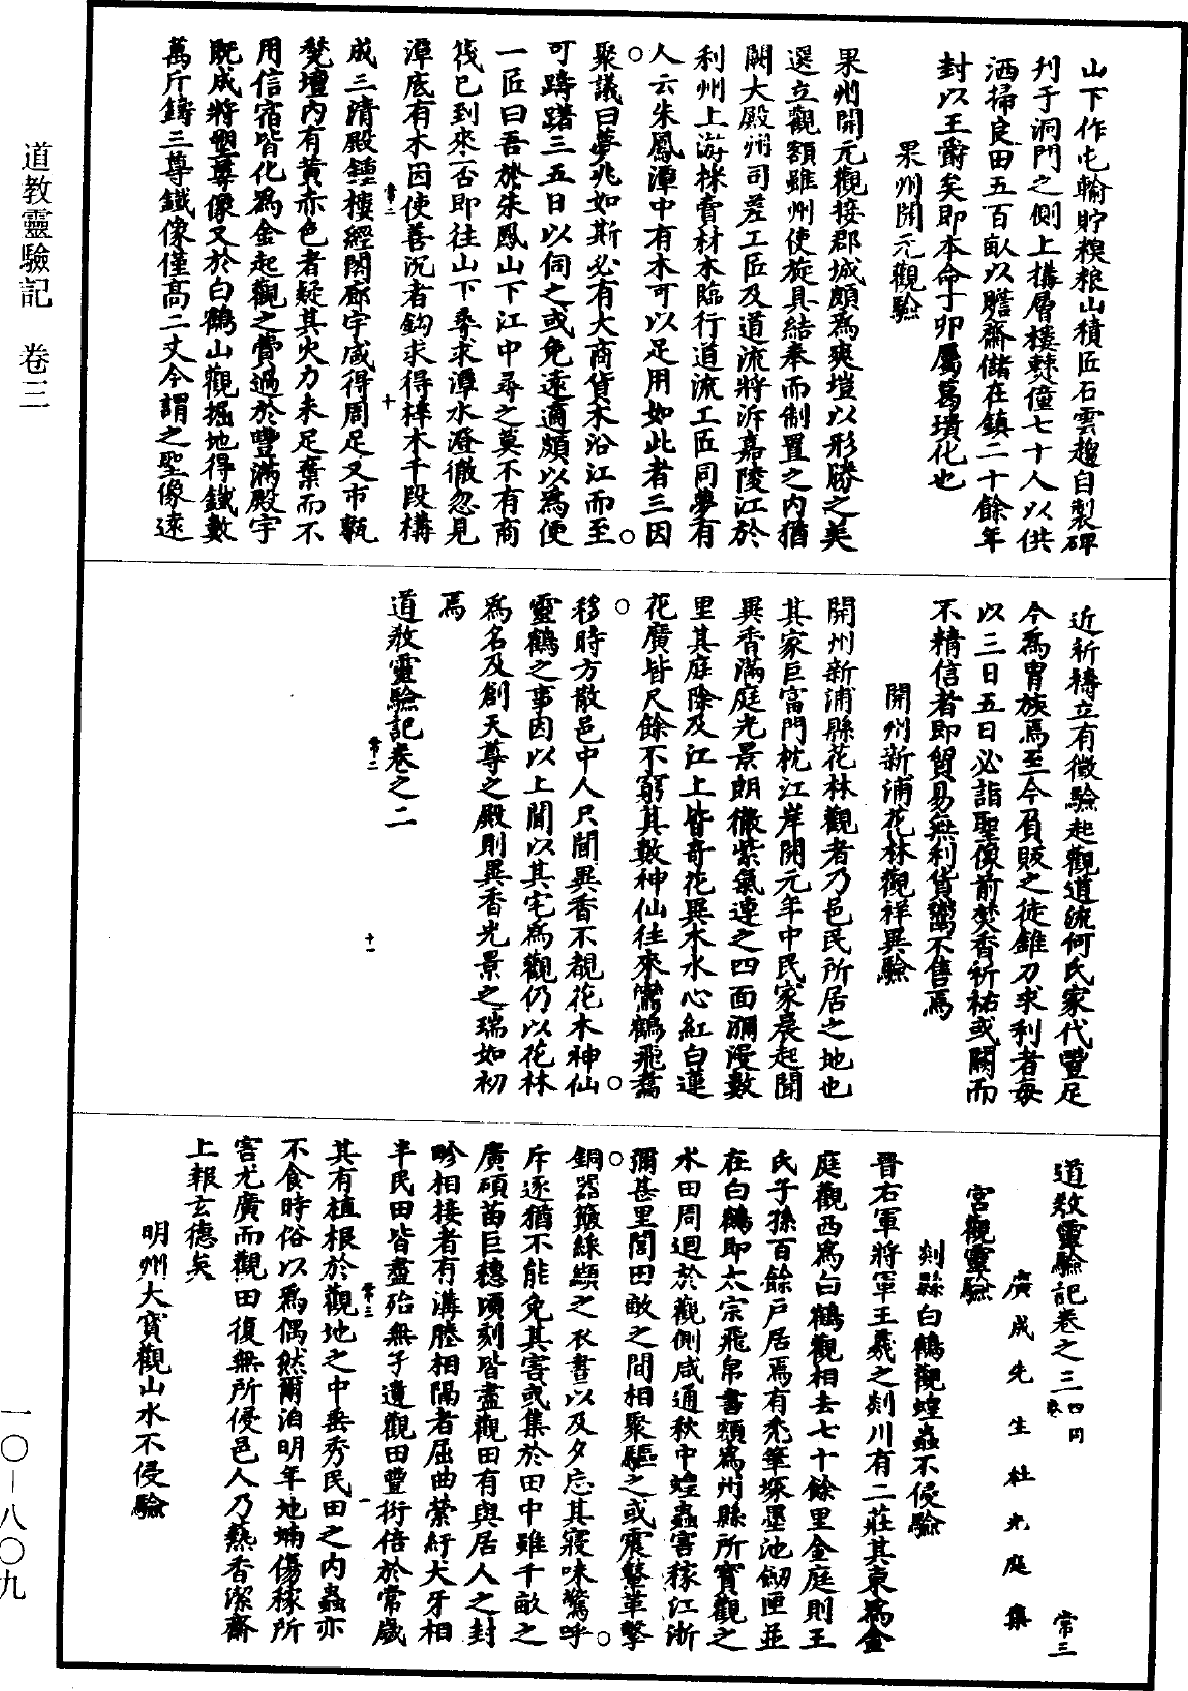 山下作屯輸貯糗粮山積匠石雲趨自製碑
刋于洞門之側上搆層樓獎僮七十人以供
洒掃良田五百畝以贍齋儲在鎮二十餘年
封以王爵矣即本命丁卯屬葛璝化也
果州開元觀驗
果州開元觀接郡城頗爲爽塏以形勝之美
選立觀額雖州使旋具結奉而制置之内猶
闕大殿州司差工匠及道流將泝嘉陵江於
利州上游採賣材木臨行道流工匠同夢有
人云朱鳳潭中有木可以足用如此者三因
聚議曰夢兆如斯必有大商貨木沿江而至
可躊躇三五日以伺之或免遠適頗以爲便
一匠曰吾於朱鳳山下江中尋之莫不有商
筏已到來否即往山下尋求潭水澄徹忽見
潭底有木因使善沉者鈎求得梓木千段構
常二 十
成三清殿鍾樓經閣廊宇咸得周足又市甎
甃壇内有黄赤色者疑其火力未足棄而不
用信宿皆化爲金起觀之費過於豐滿殿宇
既成將塑尊像又於白鶴山觀掘地得鐵數
萬斤鑄三尊鐵像僅高二丈今謂之聖像遠
近祈禱立有徵驗起觀道流何氏家代豐足
今爲胄族焉至今負販之徒錐刀求利者每
以三日五日必詣聖像前焚香祈祐或闕而
不精信者即貿易無利貨鬻不售焉
開州新浦花林觀祥異驗
開州新浦縣花林觀者乃邑民所居之地也
其家巨富門枕江岸開元年中民家晨起聞
異香滿庭光景朗徹紫氣連之四面瀰漫數
里其庭除及江上皆奇花異木水心紅白蓮
花廣皆尺餘不窮其數神仙往來鸞鶴飛翥
移時方散邑中人只聞異香不覩花木神仙
靈鶴之事因以上聞以其宅爲觀仍以花林
爲名及創天尊之殿則異香光景之瑞如初
焉
常二 十一
道教靈驗記卷之二
道教靈驗記卷之三 四同卷 常三
廣成先生杜光庭集
宮觀靈驗
剡縣白鶴觀蝗蟲不侵驗
晋右軍將軍王羲之剡川有二莊其東爲金
庭觀西爲白鶴觀相去七十餘里金庭則王
氏子孫百餘戸居焉有禿筆塚墨池劒匣並
在白鶴即太宗飛帛書額爲州縣所寶觀之
水田周迴於觀側咸通秋中蝗蟲害稼江浙
彌甚里閭田畝之間相聚驅之或震鼙革擊
銅器簸綵纈之衣晝以及夕忘其寢味驚呼
斥逐猶不能免其害或集於田中雖千畝之
廣碩苗巨穗頃刻皆盡觀田有與居人之封
畛相接者有溝塍相隔者屈曲縈紆犬牙相
半民田皆盡殆無孑遺觀田豐衍倍於常歲
常三 一
其有植根於觀地之中垂秀民田之内蟲亦
不食時俗以爲偶然爾泊明年地蝻傷稼所
害尤廣而觀田復無所侵邑人乃爇香潔齋
上報玄德矣
明州大寶觀山水不侵驗
道教靈驗記 卷三
一〇—八〇九